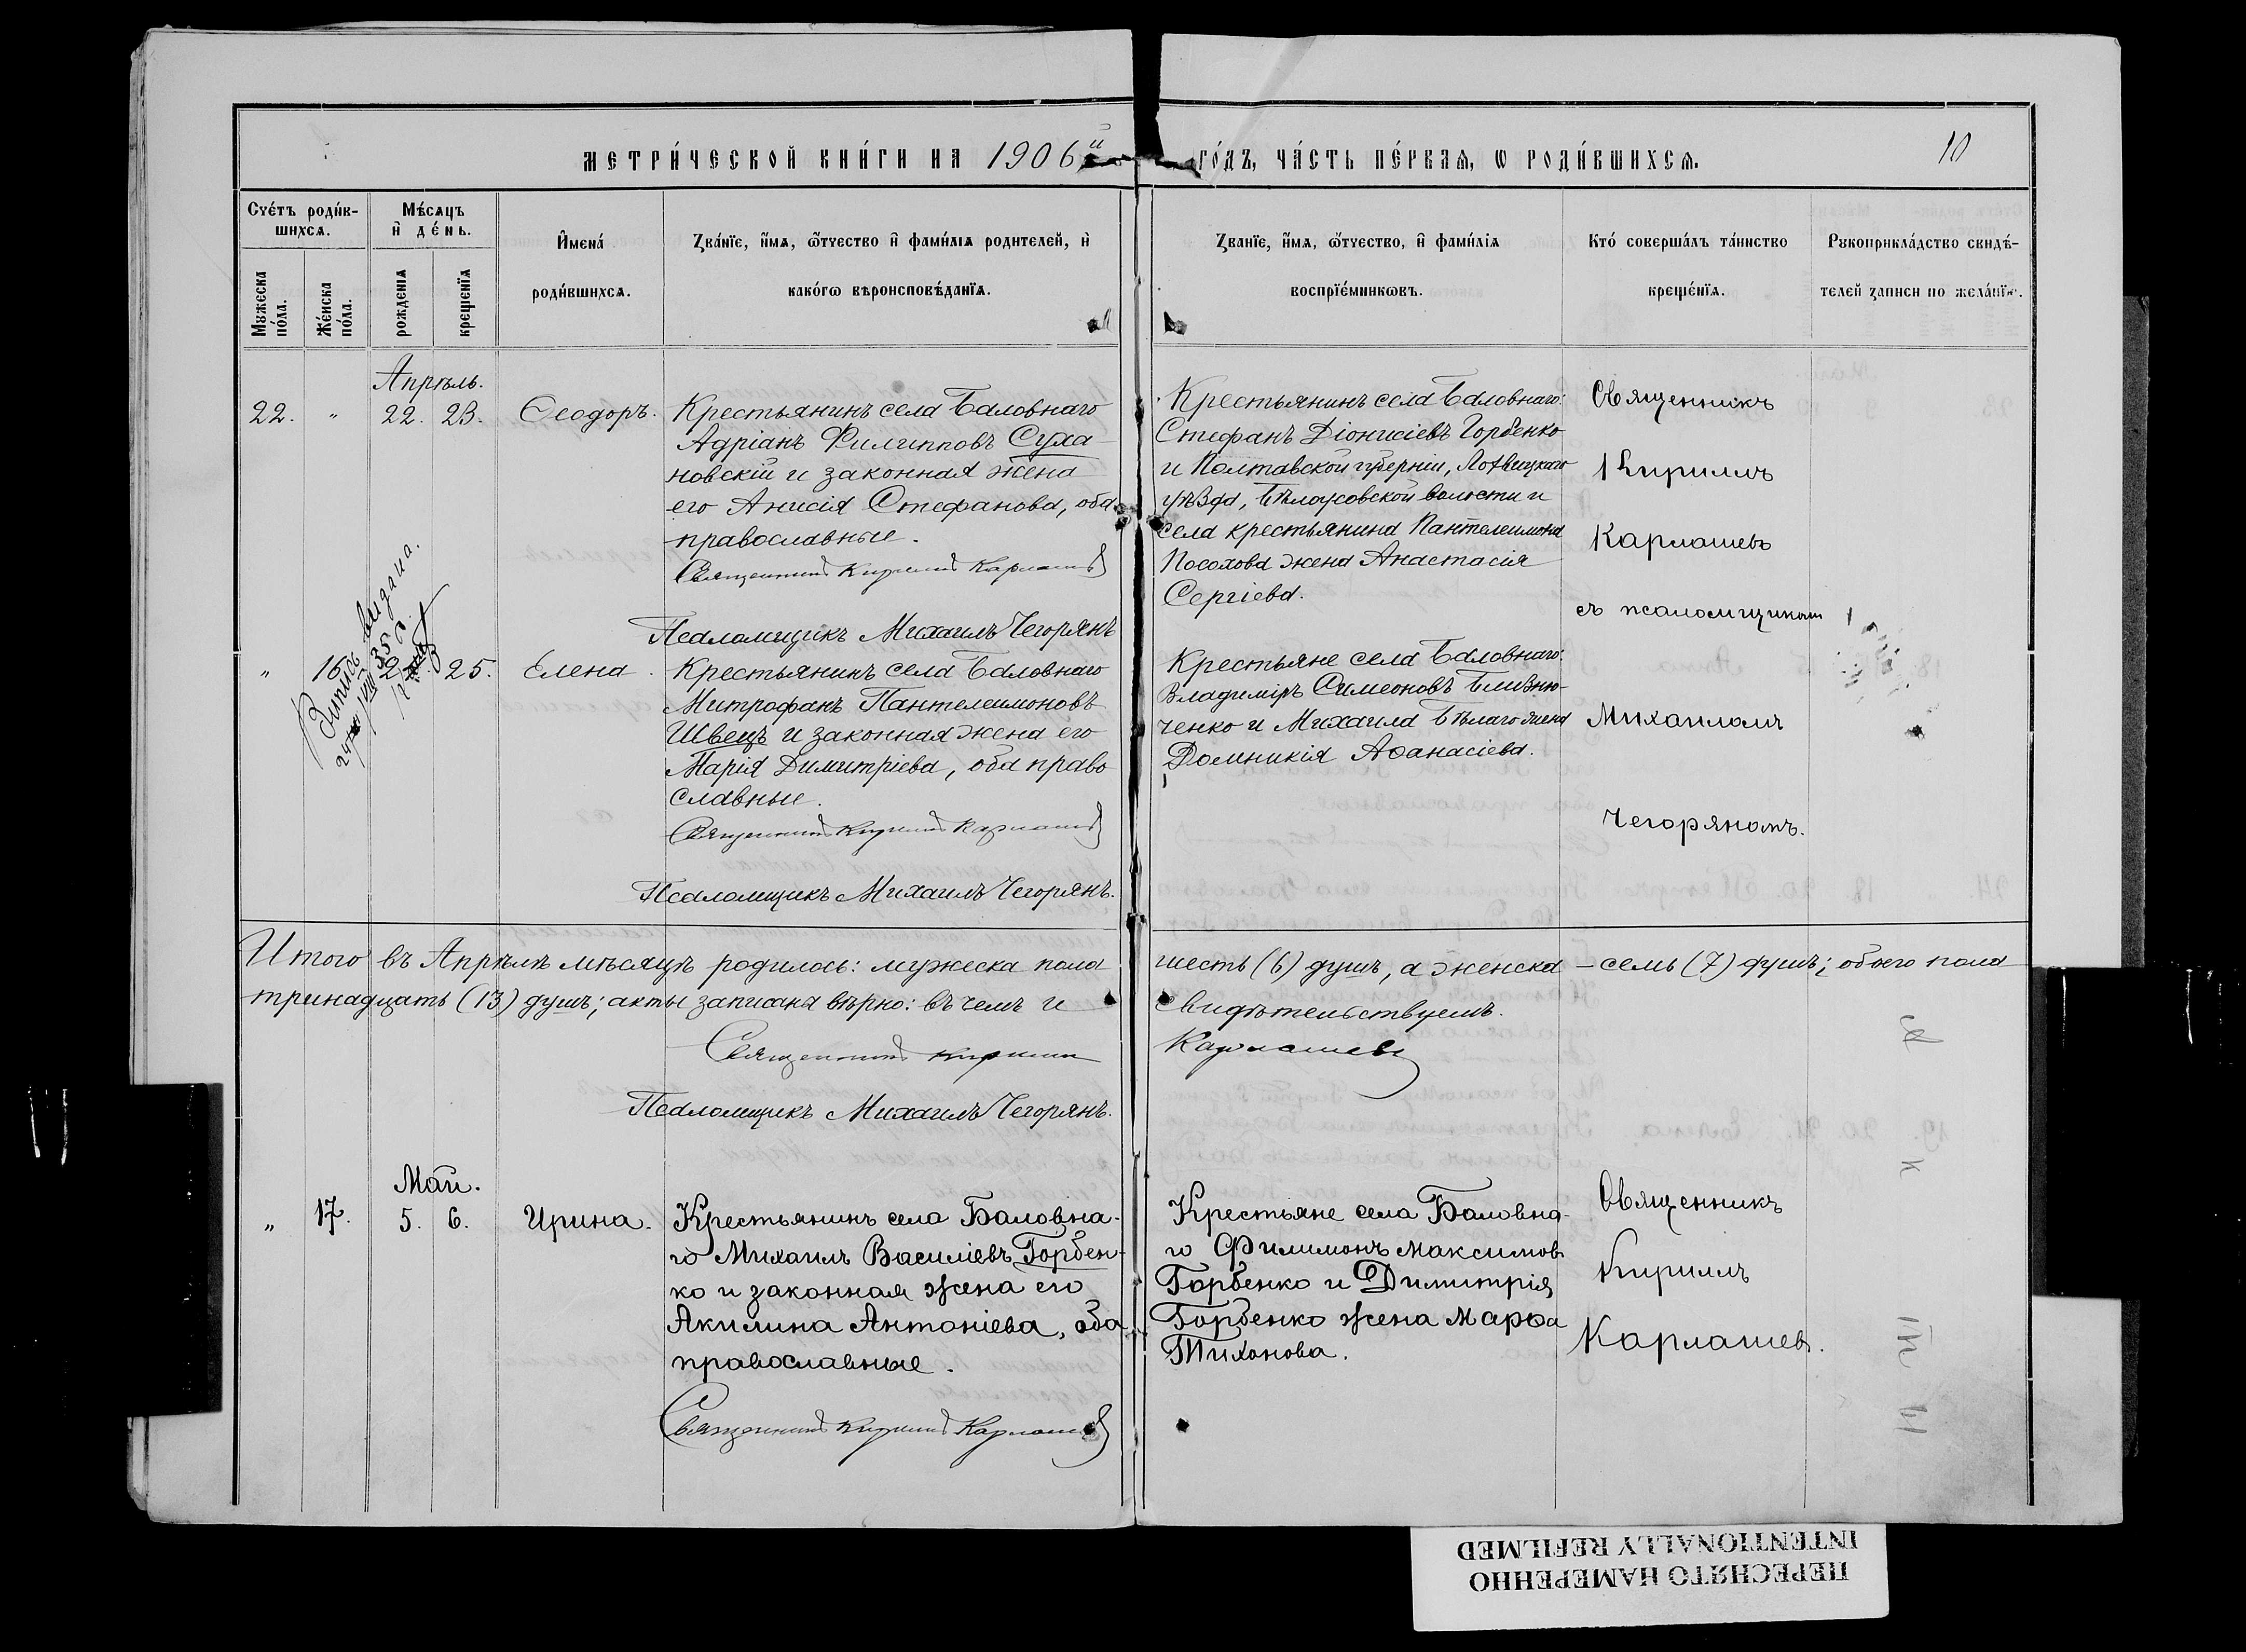 МЕТРИ́ЧЕСКОЙ КНИ́ГИ НА 1906й ГО́ДЪ, ЧА́СТЬ ПЕ́РВАѦ, Ѡ РОДИ́ВШИХСѦ.
10
Счéтъ роди́в-
шихсѧ.
Мѣ́сѧцъ
и҆ де́нь.
И҆мена́
роди́вшихсѧ.
Зва́нїе, и҆́мѧ, ѻ҆́тчество и҆ фами́лїѧ родителей, и҆
како́гѡ вѣроисповѣ́данїѧ.
Зва́нїе, и҆́мѧ, ѻ҆́тчество, и҆ фами́лїѧ
воспрїе́мниковъ.
Кто́ соверша́лъ та́инство
креще́нїѧ.
Рꙋкоприкла́дство свидѣ́-
телей записи по жела́нїю.
Мꙋжеска
по́ла.
Же́нска
по́ла.
рожденїѧ
крещенїѧ
Апрѣль.
22. " 22. 23. Ѳеодоръ.
Крестьянинъ села Баловнаго
Адріанъ Филипповъ Суха-
новскій и законная жена
его Анисія Стефанова, оба
православные.
Священникъ Кириллъ Карлашевъ
Псаломщикъ Михаилъ Чегорянъ
Крестьянинъ села Баловнаго
Стефанъ Діонисіевъ Горбенко
и Полтавской губерніи, Лохвицкаго
уѣзда, Бѣлоусовской волости и
села крестьянина Пантелеимона
Посохова жена Анастасія
Сергіева.
Священникъ
Кириллъ
Карлашевъ
съ псаломщикомъ
Михаиломъ
Чегоряномъ.
" 16. 25. Елена.
Витягъ видана.
Крестьянинъ села Баловнаго
Митрофанъ Пантелеимоновъ
Швецъ и законная жена его
Марія Димитріева, оба право
славные.
Священникъ Кириллъ Карлашевъ
Псаломщикъ Михаилъ Чегорянъ.
Крестьяне села Баловнаго:
Владиміръ Симеоновъ Близню-
ченко и Михаила Бѣлаго жена
Домникія Аѳанасіева.
Итого въ Апрѣлѣ мѣсяцѣ родилось: мужеска пола шесть (6) душъ, а женска – семь (7) душъ; обоего пола
тринадцать (13) душъ; акты записаны вѣрно: въ чемъ и свидѣтельствуемъ.
Священникъ Кириллъ Карлашевъ
Псаломщикъ Михаилъ Чегорянъ.
Май.
" 17. 5. 6. Ирина.
Крестьянинъ села Баловна-
го Михаилъ Василіевъ Горбен-
ко и законная жена его
Акилина Антоніева, оба
православные.
Священникъ Кириллъ Карлашевъ
Крестьяне села Баловна-
го Филимонъ Максимовъ
Горбенко и Димитрія
Горбенко жена Марѳа
Тихонова.
Священникъ
Кириллъ
Карлашевъ.
ПЕРЕСНЯТО НАМЕРЕННО
INTENTIONALLY REFILMED